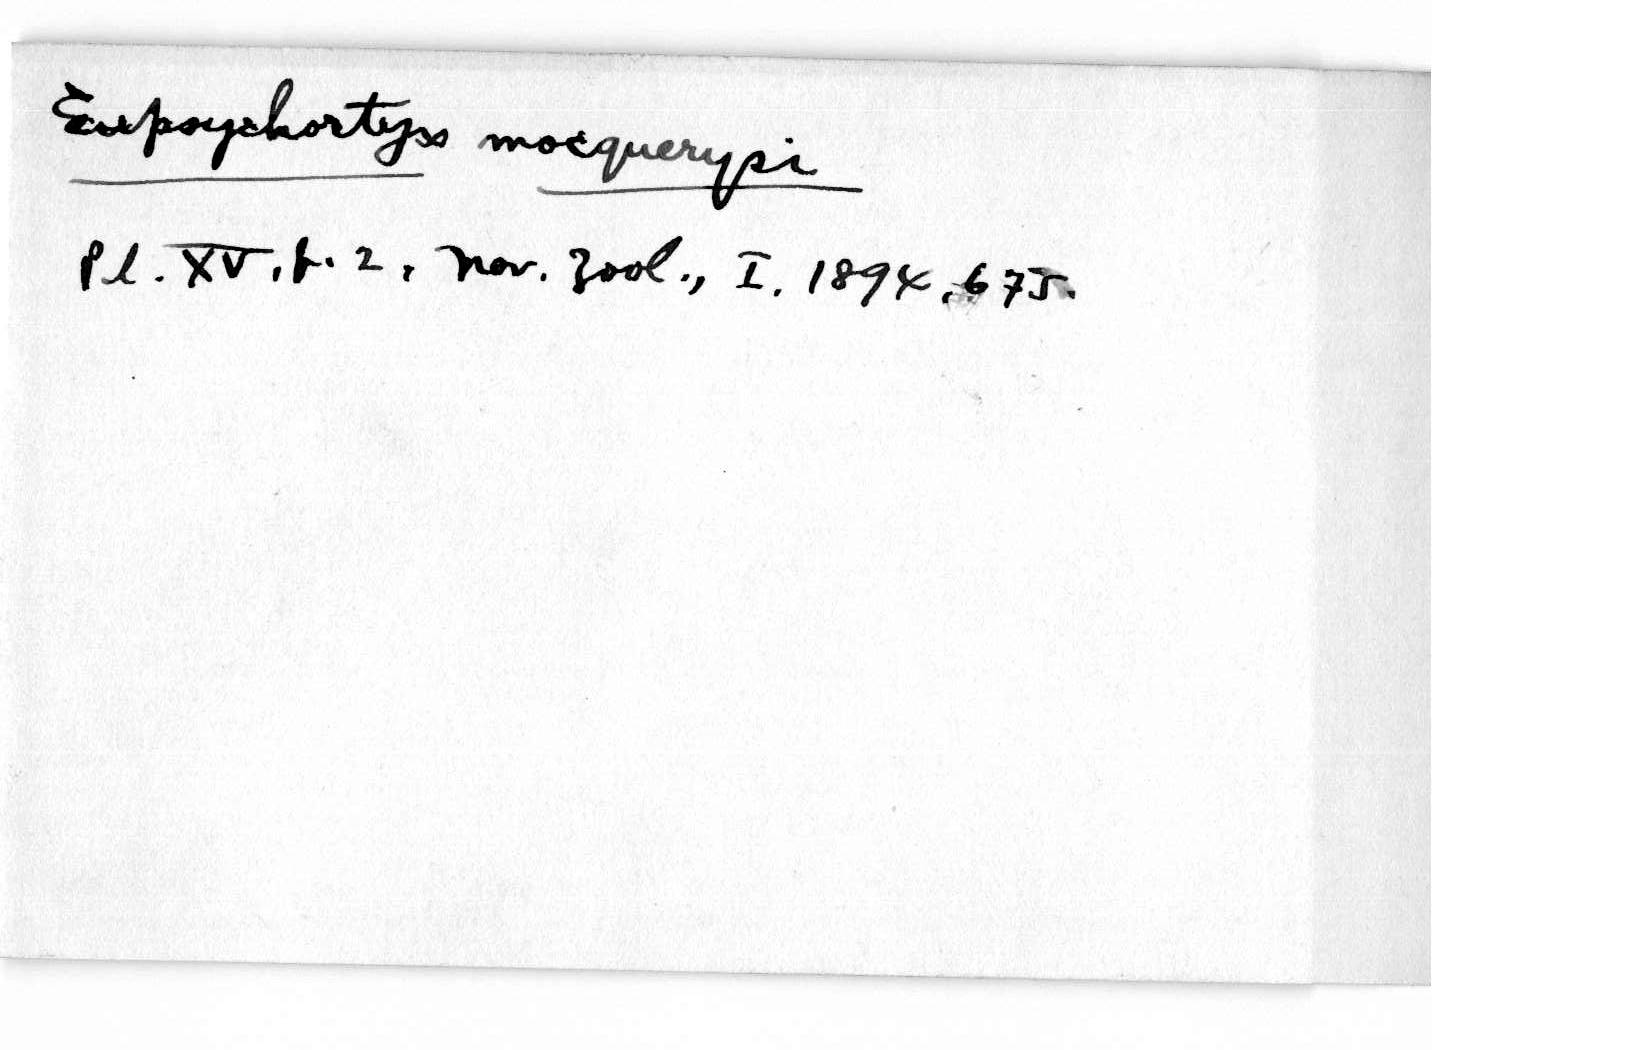 Eupsychortyx mocquerypi
Pl. XV, f. 2, Nov. Zool., I. 1894, 675.